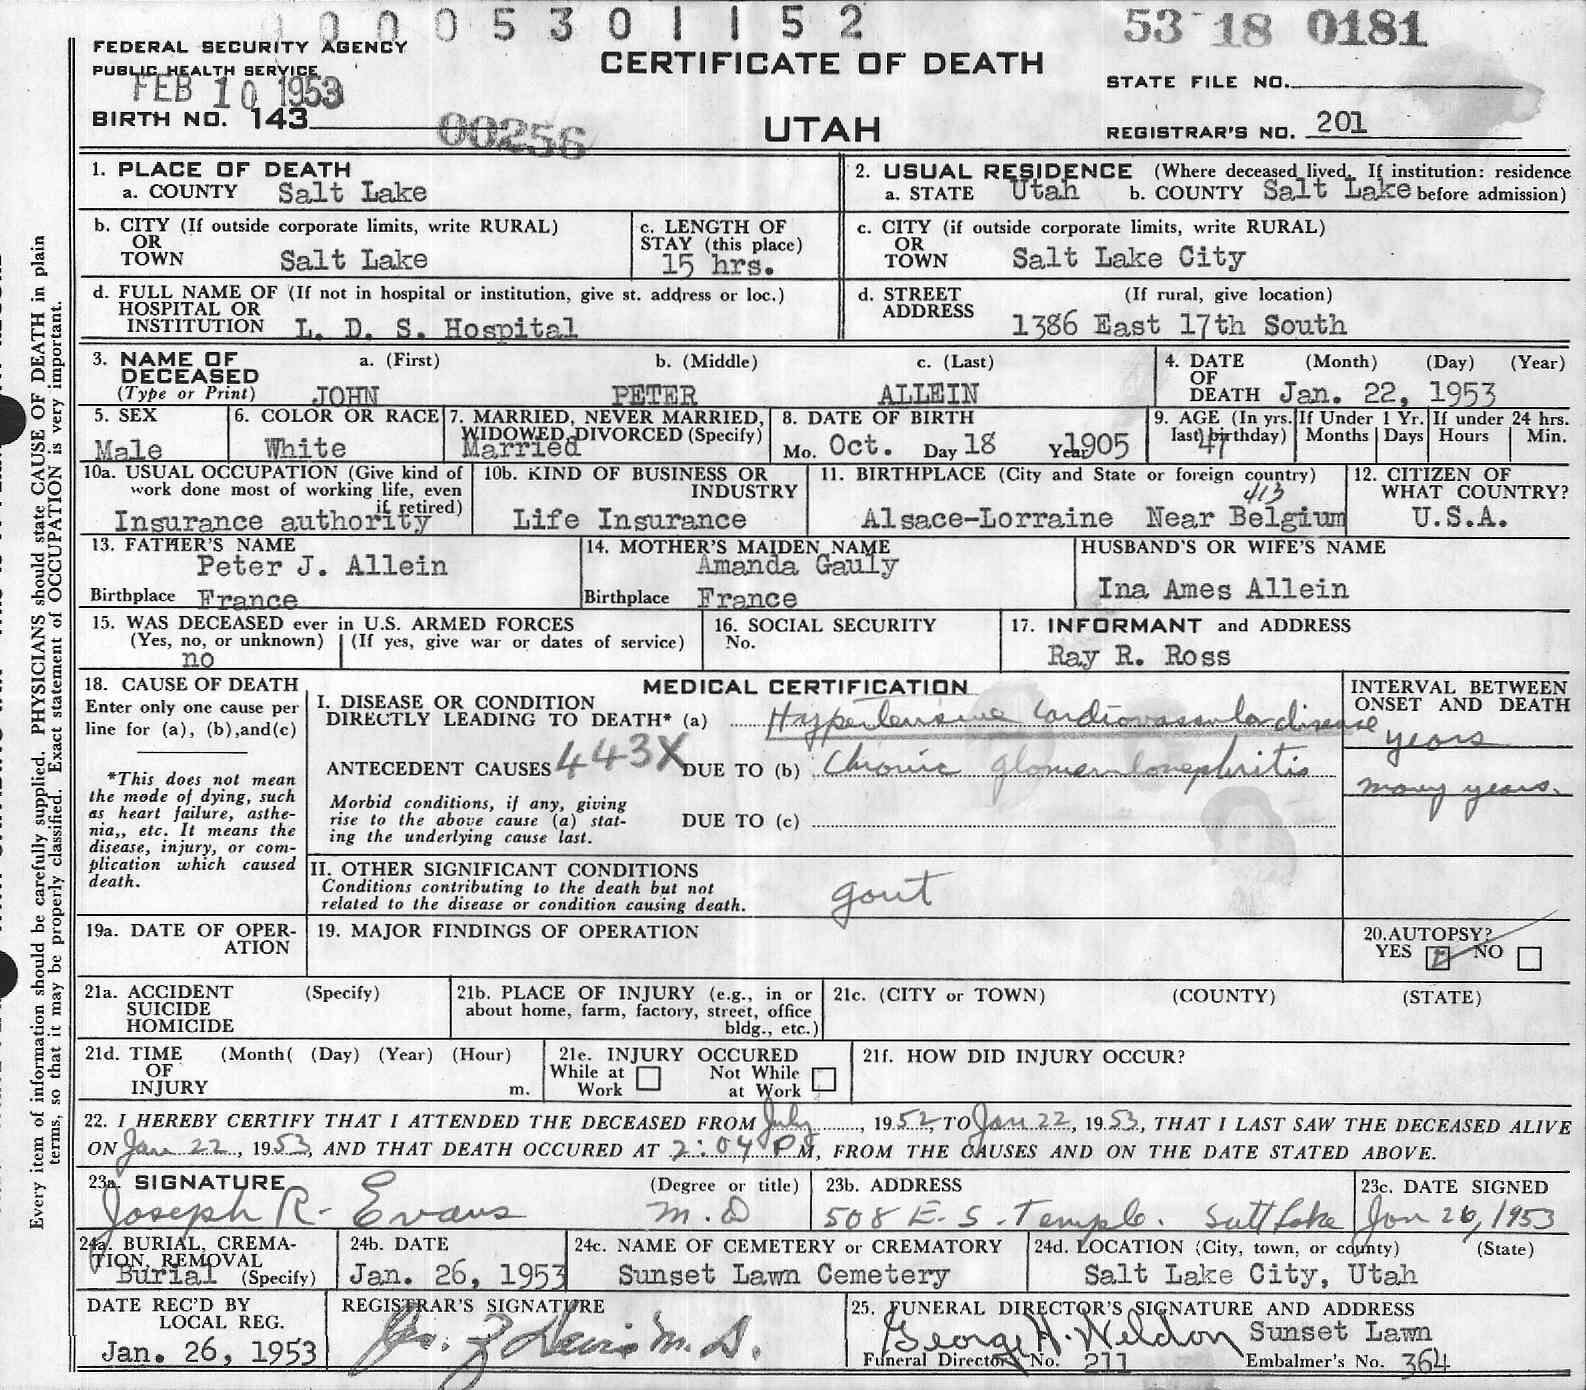 0 0 0 5 3 0 1 1 5 2
53 18 0181
FEDERAL SECURITY AGENCY
PUBLIC HEALTH SERVICE
FEB 10 1953
BIRTH NO. 143
00256
CERTIFICATE OF DEATH
UTAH
STATE FILE NO.
REGISTRAR'S NO. 201
1. PLACE OF DEATH
a. COUNTY Salt Lake
2. USUAL RESIDENCE (Where deceased lived. If institution: residence
a. STATE Utah b. COUNTY Salt Lake before admission)
b. CITY (If outside corporate limits, write RURAL)
OR
TOWN Salt Lake
c. LENGTH OF
STAY (this place)
15 hrs.
c. CITY (if outside corporate limits, write RURAL)
OR
TOWN Salt Lake City
d. FULL NAME OF (If not in hospital or institution, give st. address or loc.)
HOSPITAL OR
INSTITUTION L. D. S. Hospital
d. STREET (If rural, give location)
ADDRESS
1386 East 17th South
3. NAME OF a. (First) b. (Middle) c. (Last)
DECEASED
(Type or Print) JOHN PETER ALLEIN
4. DATE (Month) (Day) (Year)
OF
DEATH Jan. 22, 1953
5. SEX
Male
6. COLOR OR RACE
White
7. MARRIED, NEVER MARRIED,
WIDOWED, DIVORCED (Specify)
Married
8. DATE OF BIRTH
Mo. Oct. Day 18 Year 1905
9. AGE (In yrs.
last birthday)
47
If Under 1 Yr.
Months Days
If under 24 hrs.
Hours Min.
10a. USUAL OCCUPATION (Give kind of
work done most of working life, even
if retired)
Insurance authority
10b. KIND OF BUSINESS OR
INDUSTRY
Life Insurance
11. BIRTHPLACE (City and State or foreign country)
413
Alsace-Lorraine Near Belgium
12. CITIZEN OF
WHAT COUNTRY?
U.S.A.
13. FATHER'S NAME
Peter J. Allein
Birthplace France
14. MOTHER'S MAIDEN NAME
Amanda Gauly
Birthplace France
HUSBAND'S OR WIFE'S NAME
Ina Ames Allein
15. WAS DECEASED ever in U.S. ARMED FORCES
(Yes, no, or unknown) (If yes, give war or dates of service)
no
16. SOCIAL SECURITY
No.
17. INFORMANT and ADDRESS
Ray R. Ross
18. CAUSE OF DEATH
Enter only one cause per
line for (a), (b),and(c)
*This does not mean
the mode of dying, such
as heart failure, asthe-
nia,, etc. It means the
disease, injury, or com-
plication which caused
death.
MEDICAL CERTIFICATION
I. DISEASE OR CONDITION
DIRECTLY LEADING TO DEATH* (a) Hypertensive cardiovascular disease
ANTECEDENT CAUSES 443X DUE TO (b) Chronic glomerulonephritis
Morbid conditions, if any, giving
rise to the above cause (a) stat-
ing the underlying cause last.
DUE TO (c)
INTERVAL BETWEEN
ONSET AND DEATH
years
many years.
II. OTHER SIGNIFICANT CONDITIONS
Conditions contributing to the death but not
related to the disease or condition causing death.
gout
19a. DATE OF OPER-
ATION
19. MAJOR FINDINGS OF OPERATION
20.AUTOPSY?
YES NO
21a. ACCIDENT (Specify)
SUICIDE
HOMICIDE
21b. PLACE OF INJURY (e.g., in or
about home, farm, factory, street, office
bldg., etc.)
21c. (CITY or TOWN) (COUNTY) (STATE)
21d. TIME (Month( (Day) (Year) (Hour)
OF
INJURY m.
21e. INJURY OCCURED
While at Not While
Work at Work
21f. HOW DID INJURY OCCUR?
22. I HEREBY CERTIFY THAT I ATTENDED THE DECEASED FROM July, 1952, TO Jan 22, 1953, THAT I LAST SAW THE DECEASED ALIVE
ON Jan 22, 1953, AND THAT DEATH OCCURED AT 2:04 P M, FROM THE CAUSES AND ON THE DATE STATED ABOVE.
23a. SIGNATURE (Degree or title)
Joseph R. Evans M.D
23b. ADDRESS
508 E. S. Temple. Salt Lake
23c. DATE SIGNED
Jan 26, 1953
24a. BURIAL, CREMA-
TION, REMOVAL
Burial (Specify)
24b. DATE
Jan. 26, 1953
24c. NAME OF CEMETERY or CREMATORY
Sunset Lawn Cemetery
24d. LOCATION (City, town, or county) (State)
Salt Lake City, Utah
DATE REC'D BY
LOCAL REG.
Jan. 26, 1953
REGISTRAR'S SIGNATURE
M.D.
25. FUNERAL DIRECTOR'S SIGNATURE AND ADDRESS
George H. Weldon Sunset Lawn
Funeral Director No. 211 Embalmer's No. 364
Every item of information should be carefully supplied. PHYSICIANS should state CAUSE OF DEATH in plain
terms, so that it may be properly classified. Exact statement of OCCUPATION is very important.